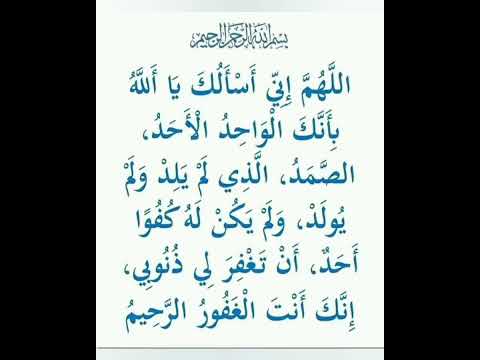 بسم الله الرحمن الرحيم
اللَّهُمَّ إِنِّي أَسْأَلُكَ يَا أَللَّهُ
بِأَنَّكَ الْوَاحِدُ الْأَحَدُ،
الصَّمَدُ، الَّذِي لَمْ يَلِدْ وَلَمْ
يُولَدْ، وَلَمْ يَكُنْ لَهُ كُفُوًا
أَحَدٌ، أَنْ تَغْفِرَ لِي ذُنُوبِي،
إِنَّكَ أَنْتَ الْغَفُورُ الرَّحِيمُ